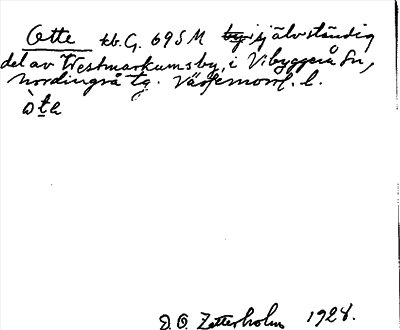 Otte kb. G. 69 S M by, självständig
del av Westmarkums by, i Vibyggerå sn,
Nordingrå tg. Västernorrl. l.
òtɛ
D. O. Zetterholm 1928.